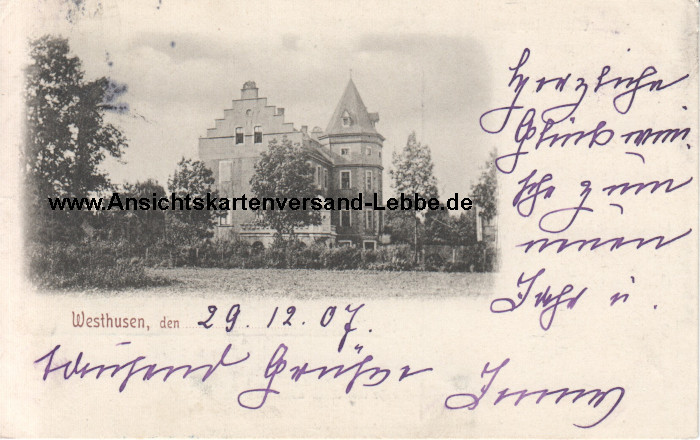 Herzliche
Glückwün
sche zum
neuen
Jahr u.
www.Ansichtskartenversand-Lebbe.de
Westhusen, den 29.12.07.
tausend Grüße